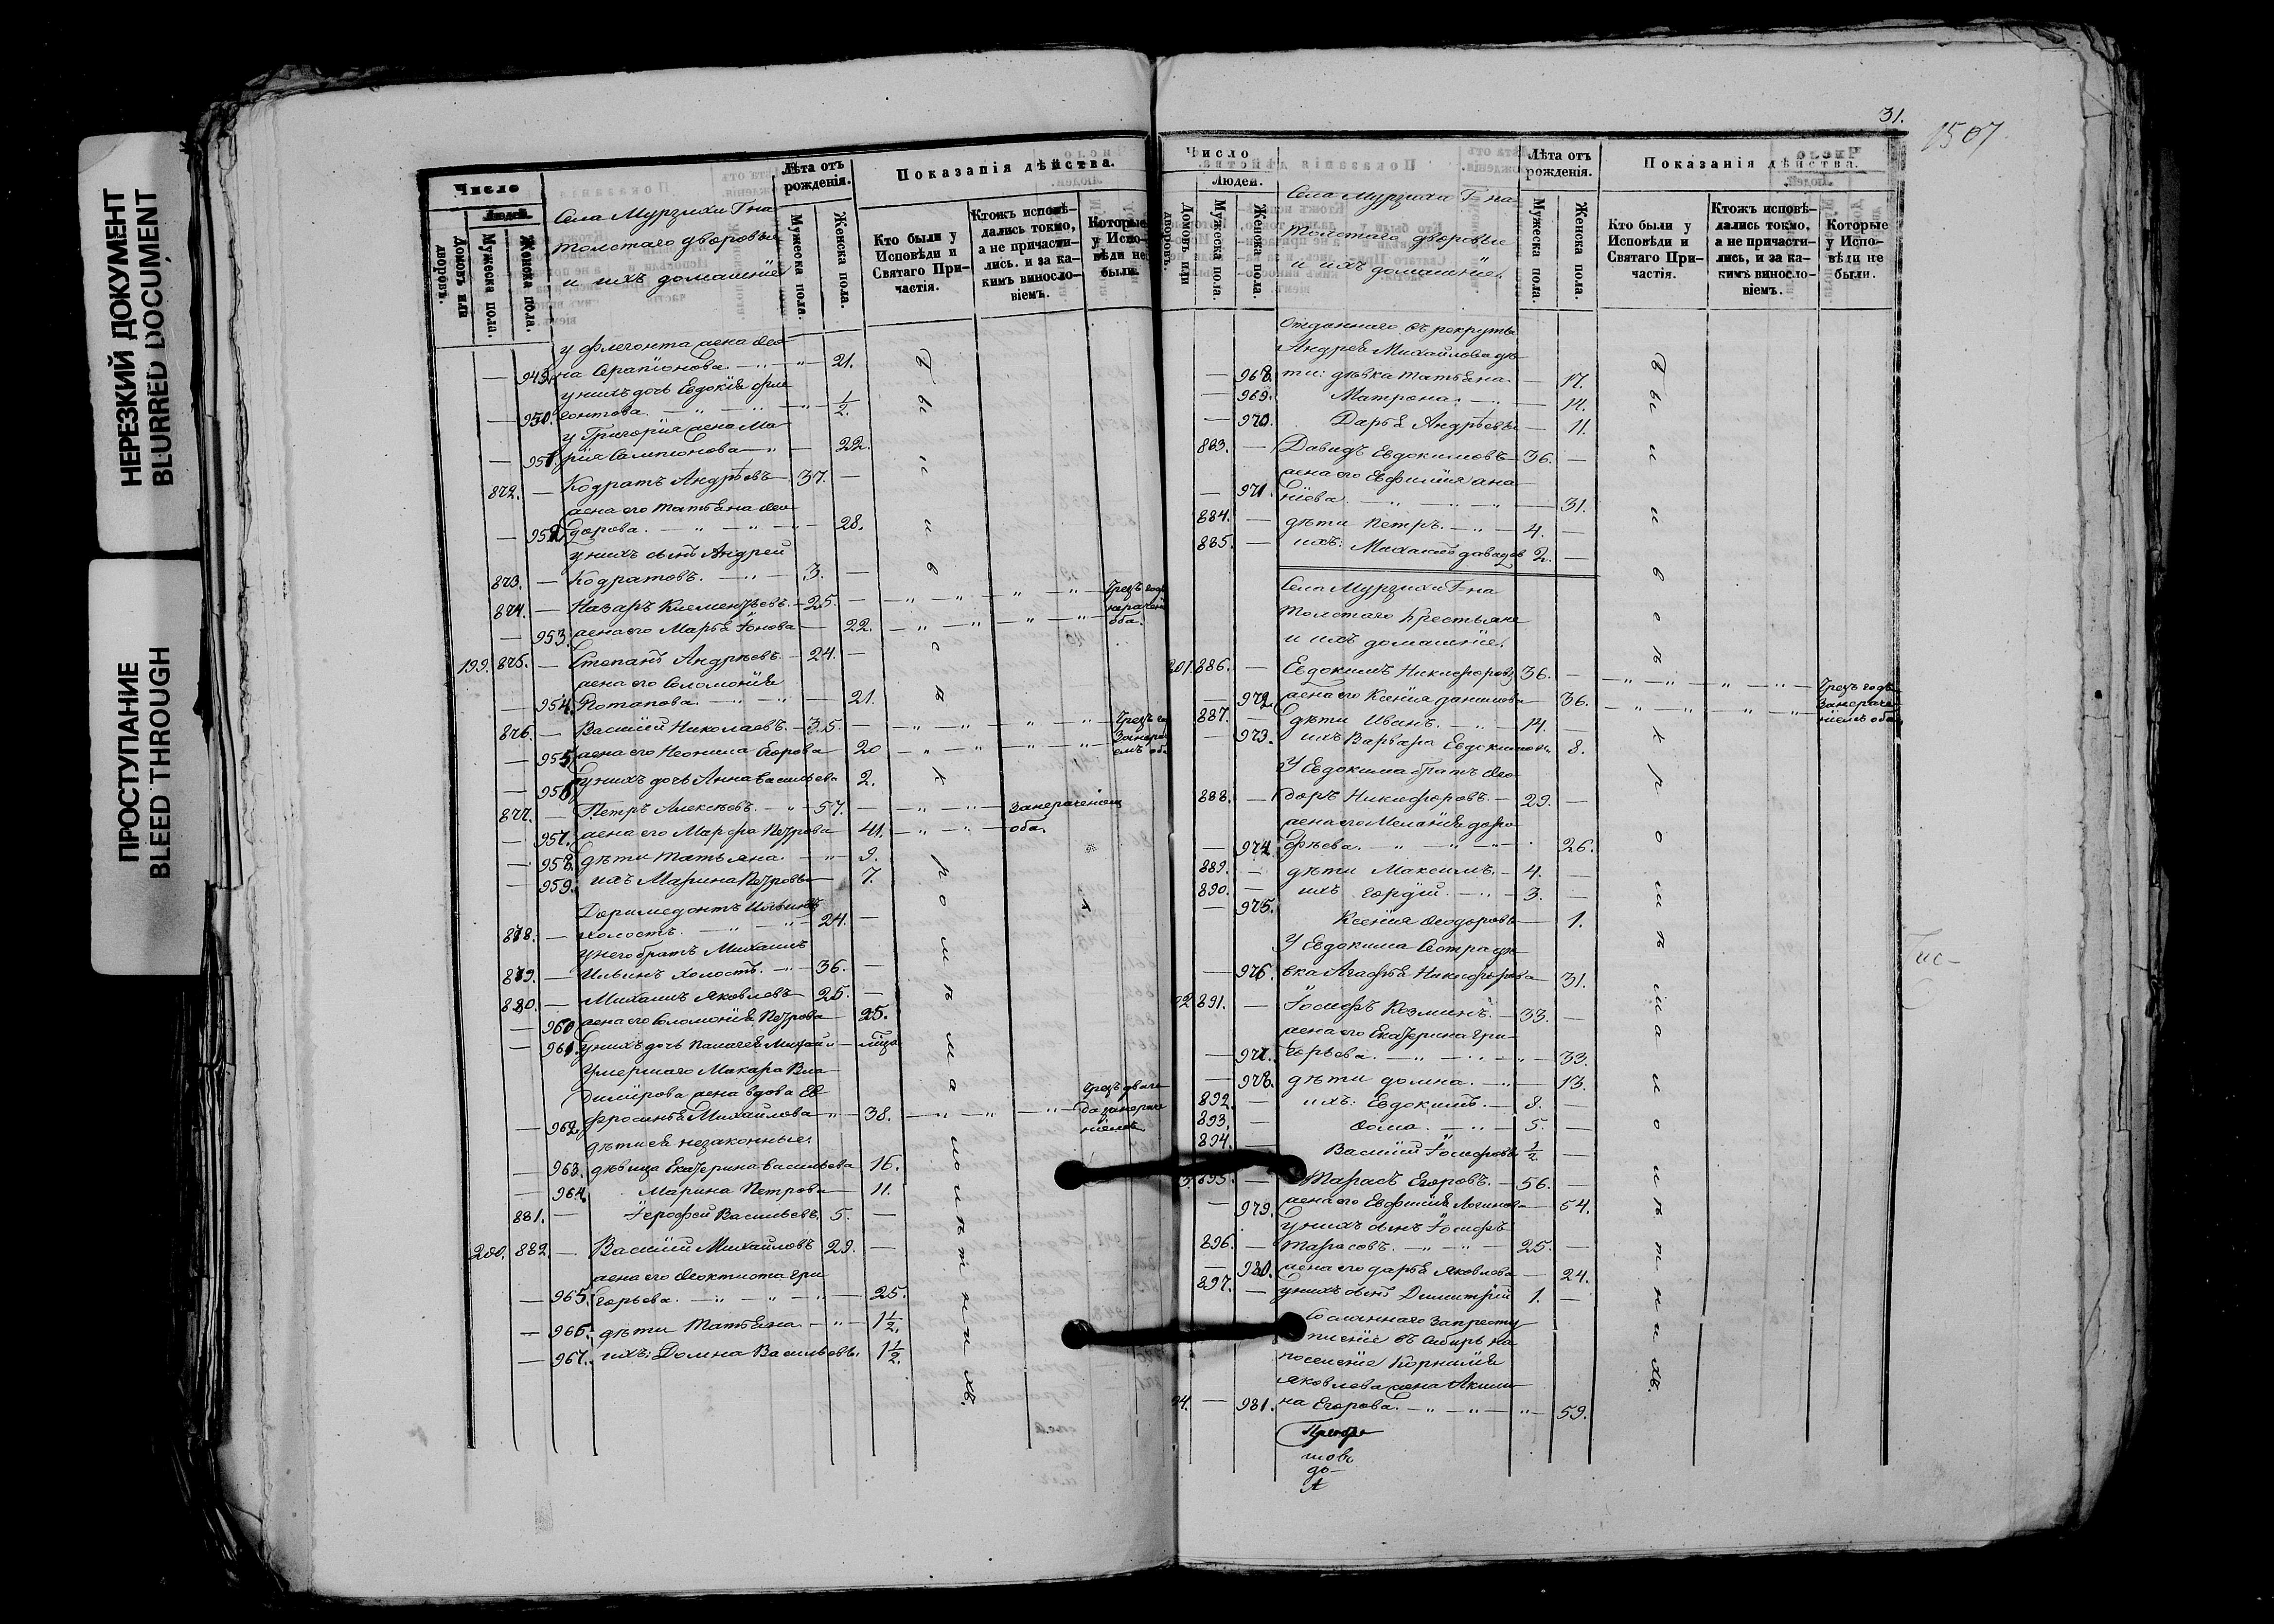 НЕРЕЗКИЙ ДОКУМЕНТ
BLURRED DOCUMENT
ПРОСТУПАНИЕ
BLEED THROUGH
Число
Людей.
Домовъ или дворовъ.
Мужеска пола.
Женска пола.
Села Мурзихи Г-на
Толстаго дворовыя
и ихъ домашніе
Лѣта отъ рожденія.
Мужеска пола.
Женска пола.
Показанія дѣйства.
Кто были у Исповѣди и Святаго Причастія.
Ктожъ исповѣдались токмо, а не причастились. и за какимъ винословіемъ.
Которые у Исповѣди не были.
у Флегонта жена Ѳео-
— 949. на Серапіонова. — 21.
у нихъ дочь Евдокія Фле
— 950. гонтова. — 1/2.
у Григорія жена Ма-
— 951. рія Сампсонова — 22.
872. — Кодратъ Андрѣевъ — 37. —
жена его Татьяна Ѳео-
— 952. дорова. — 28.
у нихъ сынъ Андрей
873. — Кодратовъ. — 3. —
874. — Назаръ Климентьевъ. — 25. — Чрезъ годъ
— 953. жена его Марья Іонова — 22. оба.
199. 875. — Степанъ Андрѣевъ. — 24. —
жена его Соломонія
— 954. Потапова. — 21.
876. — Василій Николаевъ. — 35. —
— 955. жена его Неонила Егорова 20
— 956. у нихъ дочь Анна Васильева 2.
877. — Петръ Алексѣевъ. — 57. — За нераченіемъ
— 957. жена его Марфа Петрова 41. оба.
— 958. дѣти Татьяна. — 9.
— 959. ихъ Марина Петровы — 7.
Доримедонтъ Ильинъ
878. — холостъ. — 24. —
у него братъ Михаилъ
879. — Ильинъ холостъ. — 36. —
880. — Михаилъ Яковлевъ 25. —
— 960. жена его Соломонія Петрова 25.
— 961. у нихъ дочь Пелагея Михайл —
Умершаго Макара Вла
димірова жена вдова Ев
— 962. фросинья Михайлова — 38.
дѣти ея незаконные.
— 963. дѣвица Екатерина Васильева 16.
— 964. Марина Петрова 11.
881. — Іерофей Васильевъ. 5. —
200. 882. — Василій Михайловъ 29. —
жена его Ѳеоктиста Гри
— 965. горьева. — 25.
— 966. дѣти Татьяна. — 1 1/2.
— 967. ихъ: Домна Васильевы. 1 1/2.
Были и всѣ кромѣ малолѣтнихъ.
31.
1507
Число
Людей.
Домовъ или дворовъ.
Мужеска пола.
Женска пола.
Села Мурзихи Г-на
Толстаго дворовые
и ихъ домашніе.
Лѣта отъ рожденія.
Мужеска пола.
Женска пола.
Показанія дѣйства.
Кто были у Исповѣди и Святаго Причастія.
Ктожъ исповѣдались токмо, а не причастились, и за какимъ винословіемъ.
Которые у Исповѣди не были.
Отданнаго въ рекруты
Андрея Михайлова дѣ-
— 968. ти: дѣвка Татьяна. — 17.
— 969. Матрона. — 14.
— 970. Дарья Андрѣевы — 11.
883. — Давидъ Евдокимовъ — 36. —
жена его Евфимія Ана-
— 971. ніева. — 31.
884. — дѣти Петръ. — 4. —
885. — ихъ: Михаилъ Давидов 2. —
Села Мурзихи Г-на
Толстаго крестьяне
и ихъ домашніе.
201. 886. — Евдокимъ Никифоровъ 36. — Чрезъ годъ
— 972. жена его Ксенія Данилова 36. За нераче-
887. — дѣти Иванъ. — 14. — ніемъ оба.
— 973. ихъ Варвара Евдокимовы 8.
У Евдокима братъ Ѳео-
888. — доръ Никифоровъ. — 29. —
жена его Меланія Доро-
— 974. фѣева. — 26.
889. — дѣти Максимъ. — 4. —
890. — ихъ Гордѣй. — 3. —
— 975. Ксенія Ѳеодоровы — 1.
У Евдокима Сестра дѣ-
— 976. вка Агафья Никифорова 31.
891. — Іосифъ Козминъ. — 33. —
жена его Екатерина Гри-
— 977. горьева. — 33.
— 978. дѣти Домна. — 13.
892. — ихъ: Евдокимъ. — 8. —
893. — Ѳома. — 5. —
894. — Василій Іосифовы 1/2 —
895. — Тарасъ Егоровъ. — 56. —
— 979. жена его Евфимія Логинова 54.
у нихъ сынъ Іосифъ
896. — Тарасовъ. — 25. —
— 980. жена его Дарья Яковлева — 24.
897. — у нихъ сынъ Димитрій 1. —
Сосланнаго за престу
пленіе въ Сибирь на
поселеніе Корнилія
Яковлева жена Акили-
— 981. на Егорова. — 59.